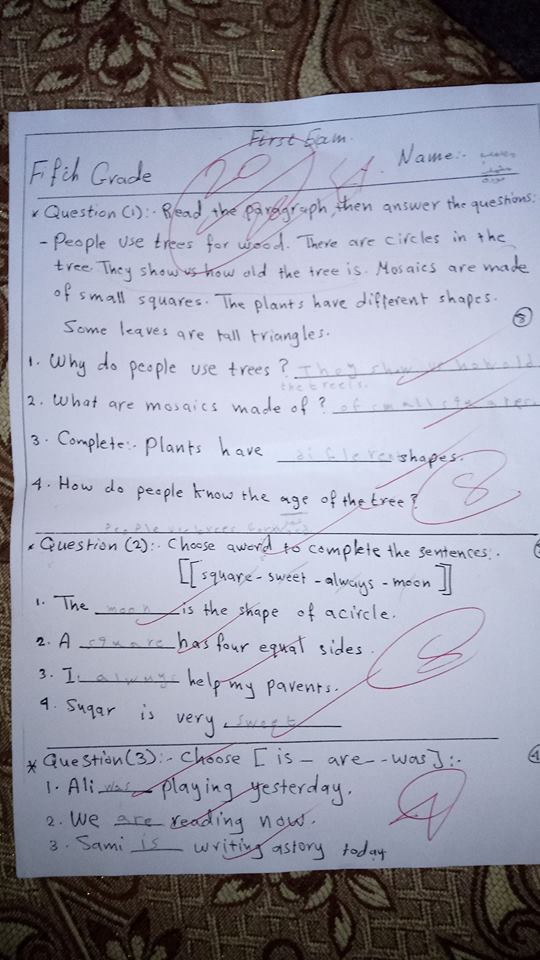 First Exam.
Fifth Grade
Name:-
* Question (1):- Read the paragraph, then answer the questions:
- People use trees for wood. There are circles in the
tree. They show us how old the tree is. Mosaics are made
of small squares. The plants have different shapes.
Some leaves are tall triangles.
8
1. Why do people use trees? They show us how old
the tree is.
2. What are mosaics made of? of small squares
3. Complete:- Plants have different shapes.
4. How do people know the age of the tree?
8
People use trees for wood
* Question (2):- Choose a word to complete the sentences:-
[[square - sweet - always - moon]]
1. The moon is the shape of a circle.
2. A square has four equal sides.
8
3. I always help my parents.
4. Sugar is very sweet
* Question (3):- Choose [is - are - was]:-
4
1. Ali was playing yesterday.
2. We are reading now.
4
3. Sami is writing a story today